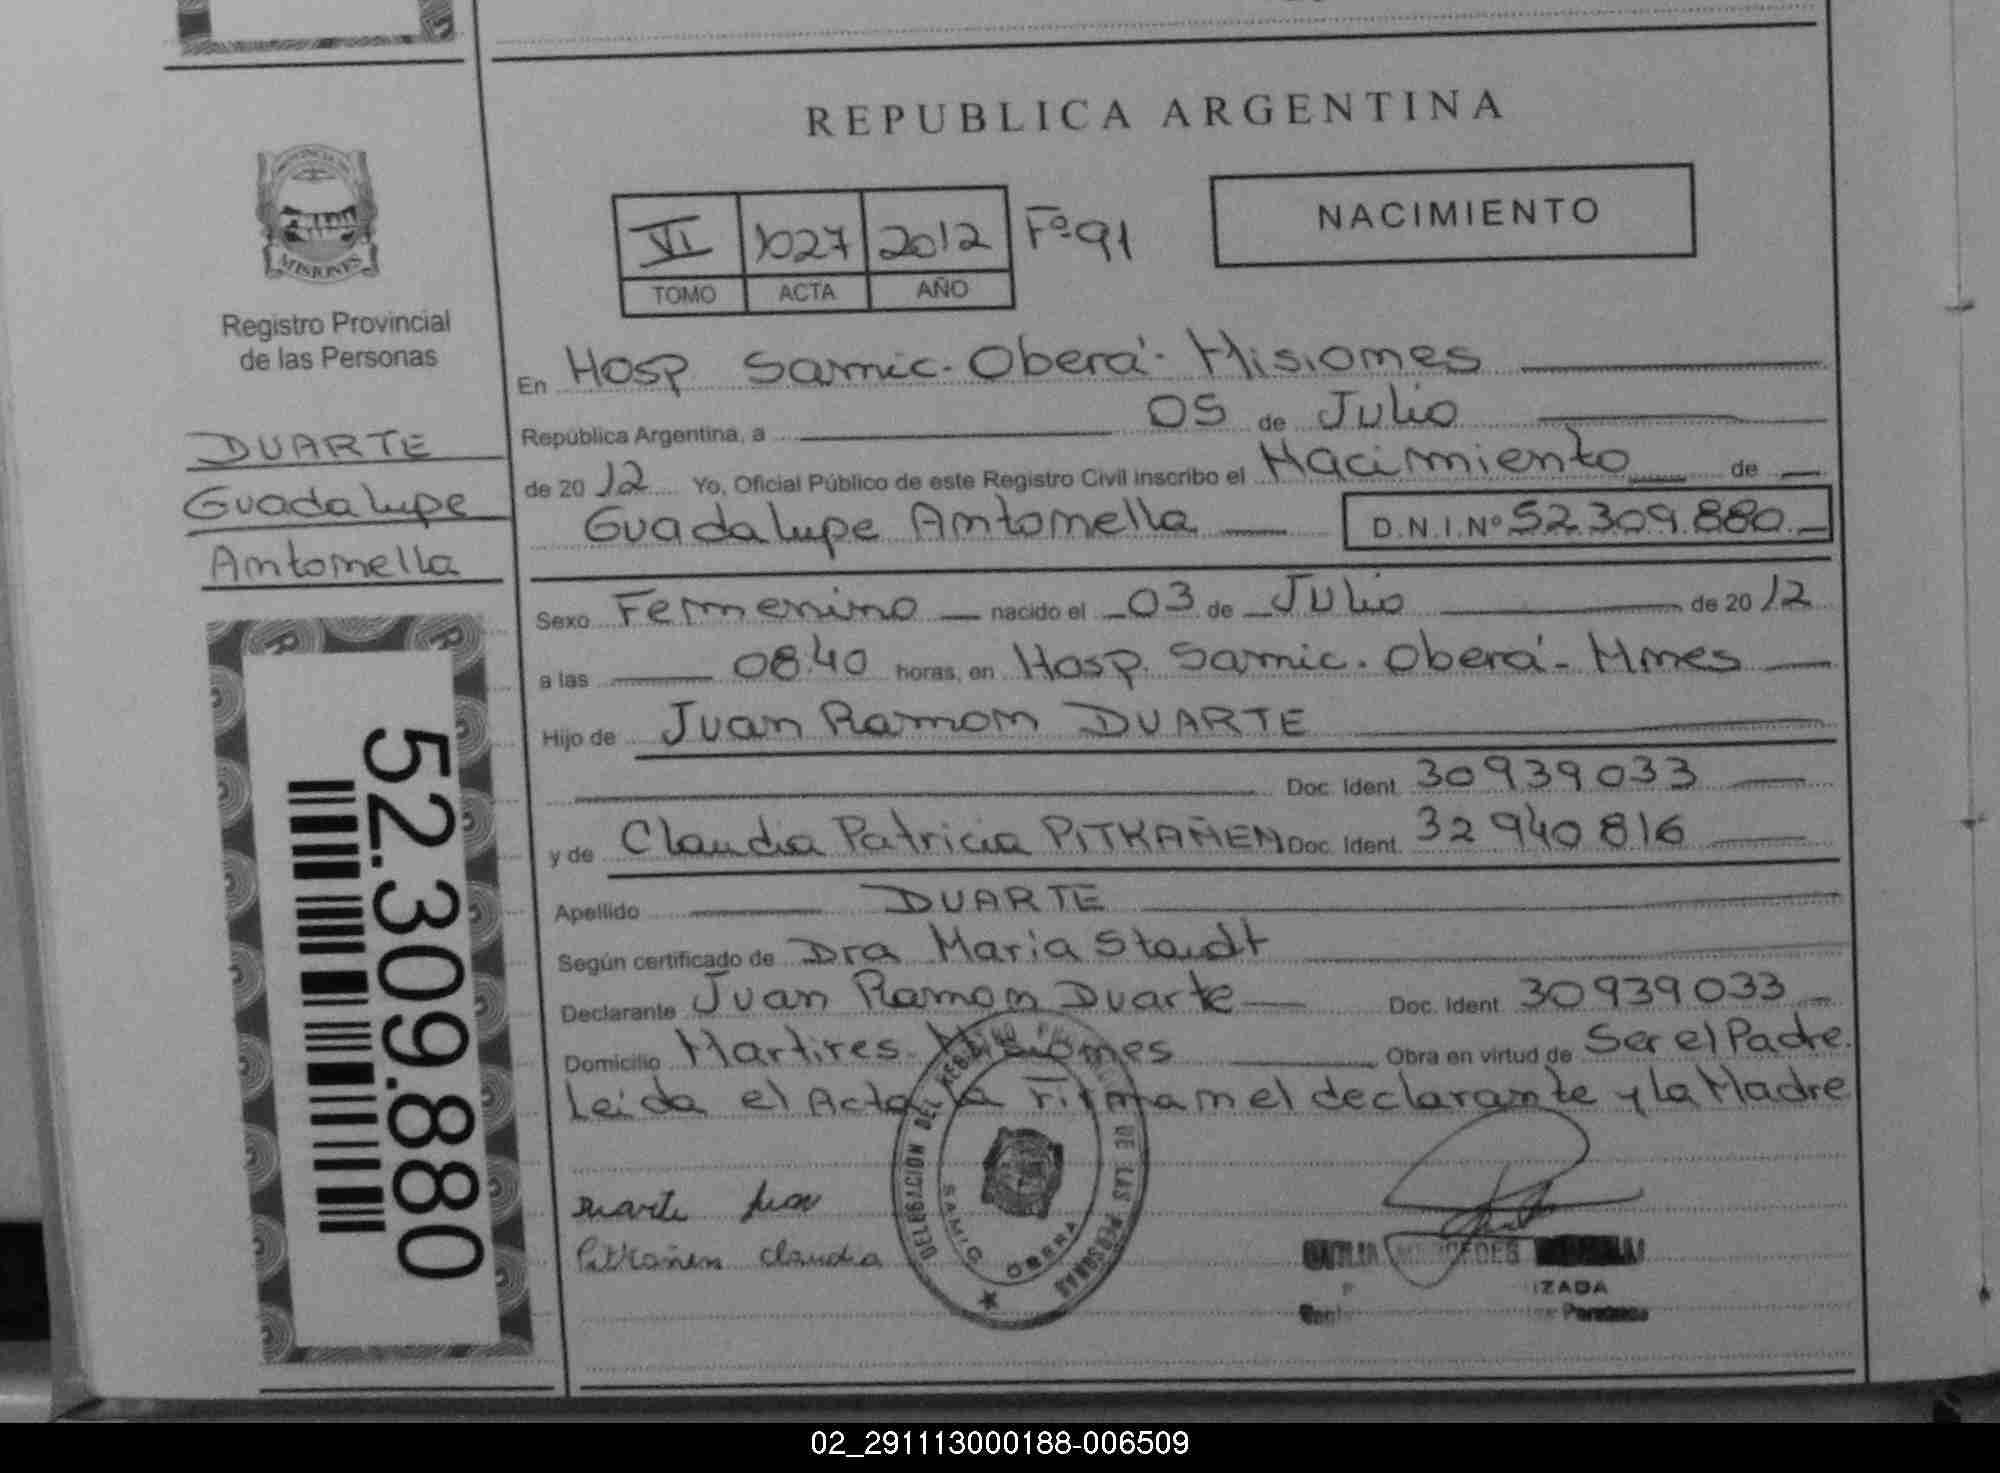 REPUBLICA ARGENTINA
NACIMIENTO
VI 1027 2012 Fº 91
TOMO ACTA AÑO
PROVINCIA DE
MISIONES
Registro Provincial
de las Personas
DUARTE
Guadalupe
Antonella
52.309.880
En Hosp Samic. Oberá - Misiones
República Argentina, a 05 de Julio
de 2012 Yo, Oficial Público de este Registro Civil inscribo el Nacimiento de
Guadalupe Antonella D.N.I.Nº 52.309.880.
Sexo Femenino nacido el 03 de Julio de 2012
a las 08.40 horas, en Hosp. Samic. Oberá - Mnes
Hijo de Juan Ramon DUARTE
Doc. Ident. 30939033
y de Claudia Patricia PITKAÑEN Doc. Ident. 32940816
Apellido DUARTE
Según certificado de Dra Maria Staudt
Declarante Juan Ramon Duarte Doc. Ident. 30939033
Domicilio Martires. Misiones Obra en virtud de Ser el Padre.
Leida el Acta la Firman el declarante y la Madre
Duarte Juan
Pitkañen Claudia
DELEGACION DEL REGISTRO PROVINCIAL DE LAS PERSONAS
SAMIC OBERA
MERCEDES
IZADA
Personas
02_291113000188-006509